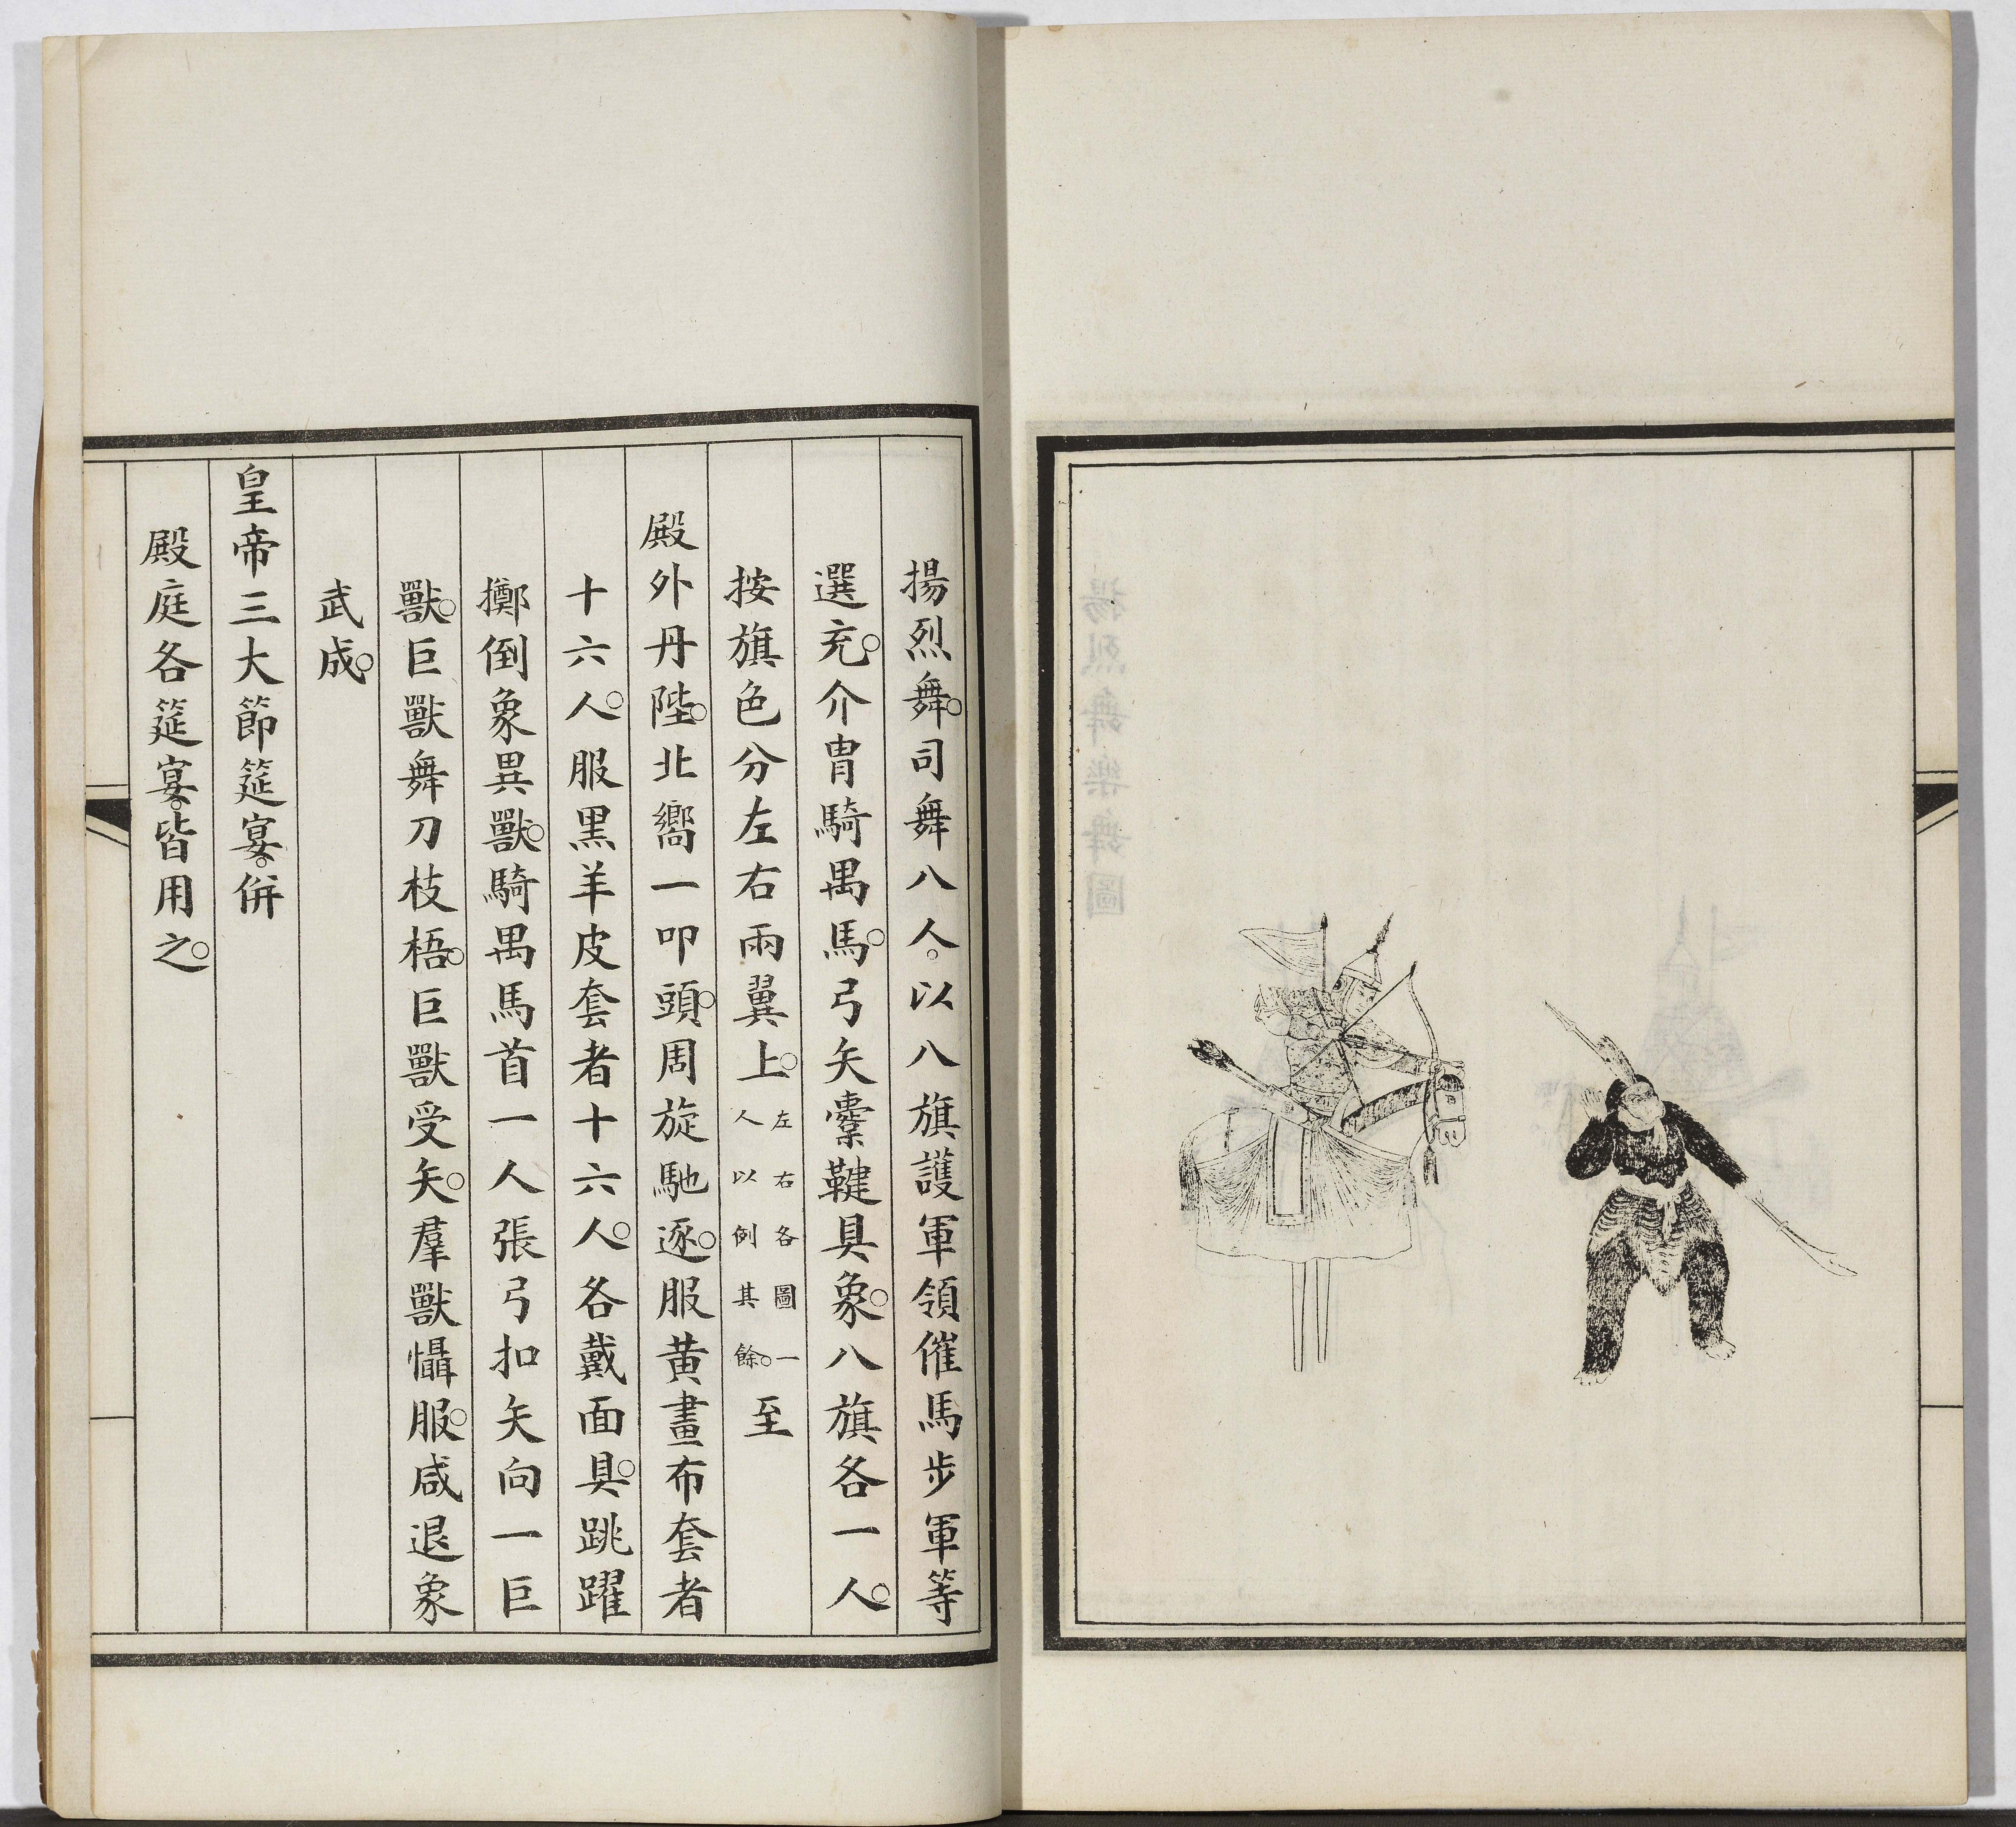 揚烈舞。司舞八人。以八旗護軍領催馬步軍等
選充。介胄騎禺馬。弓矢櫜鞬具象。八旗各一人。
按旗色分左右兩翼上。左右各圖一人以例其餘。至
殿外丹陛。北嚮一叩頭。周旋馳逐。服黃畫布套者
十六人。服黑羊皮套者十六人。各戴面具。跳躍
擲倒象異獸。騎禺馬首一人張弓扣矢向一巨
獸。巨獸舞刀枝梧。巨獸受矢。羣獸懾服。咸退象
武成。
皇帝三大節筵宴。併
殿庭各筵宴。皆用之。